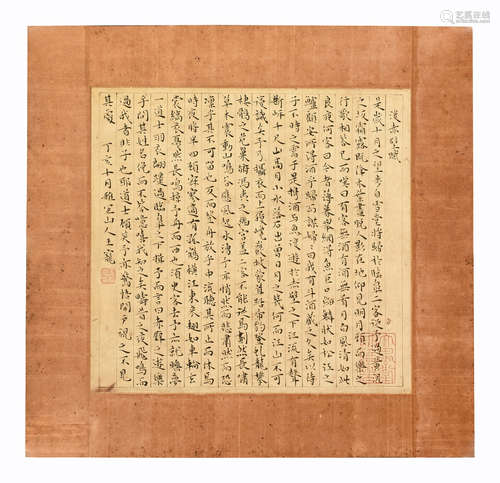 後赤壁賦
是歲十月之望步自雪堂將歸於臨皋二客從予過黃泥
之坂霜露既降木葉盡脫人影在地仰見明月顧而樂之
行歌相答已而嘆曰有客無酒有酒無肴月白風清如此
良夜何客曰今者薄暮舉網得魚巨口細鱗狀如松江之
鱸顧安所得酒乎歸而謀諸婦曰我有斗酒藏之久矣以待
子不時之需於是攜酒與魚復遊於赤壁之下江流有聲
斷岸千尺山高月小水落石出曾日月之幾何而江山不可
復識矣予乃攝衣而上履巉巖披蒙茸踞虎豹登虬龍攀
棲鶻之危巢俯馮夷之幽宮蓋二客不能從焉劃然長嘯
草木震動山鳴谷應風起水湧予亦悄然而悲肅然而恐
凜乎其不可留也反而登舟放乎中流聽其所止而休焉
時夜將半四顧寂寥適有孤鶴橫江東來翅如車輪玄
裳縞衣戛然長鳴掠予舟而西也須臾客去予亦就睡夢
一道士羽衣翩躚過臨皋之下揖予而言曰赤壁之遊樂
乎問其姓名俛而不答嗚呼噫嘻我知之矣疇昔之夜飛鳴而
過我者非子也耶道士顧笑予亦驚悟開戶視之不見
其處 丁亥十月雅宜山人王寵